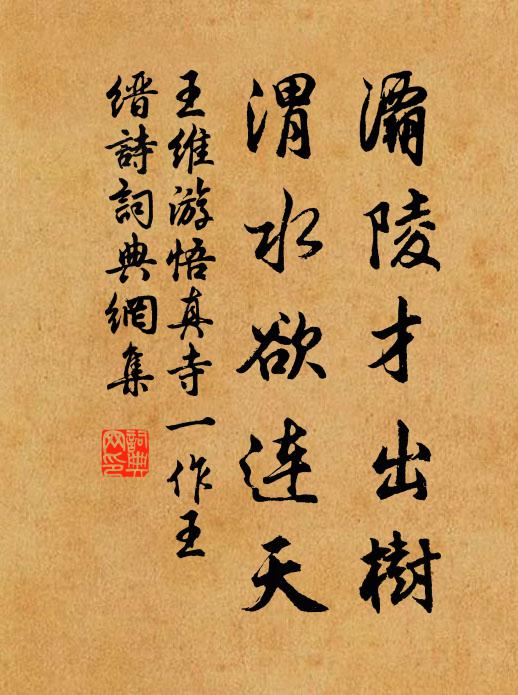 灞陵才出樹
渭水欲連天
王維游悟真寺一作王
縉詩詞典網集
詞典網印